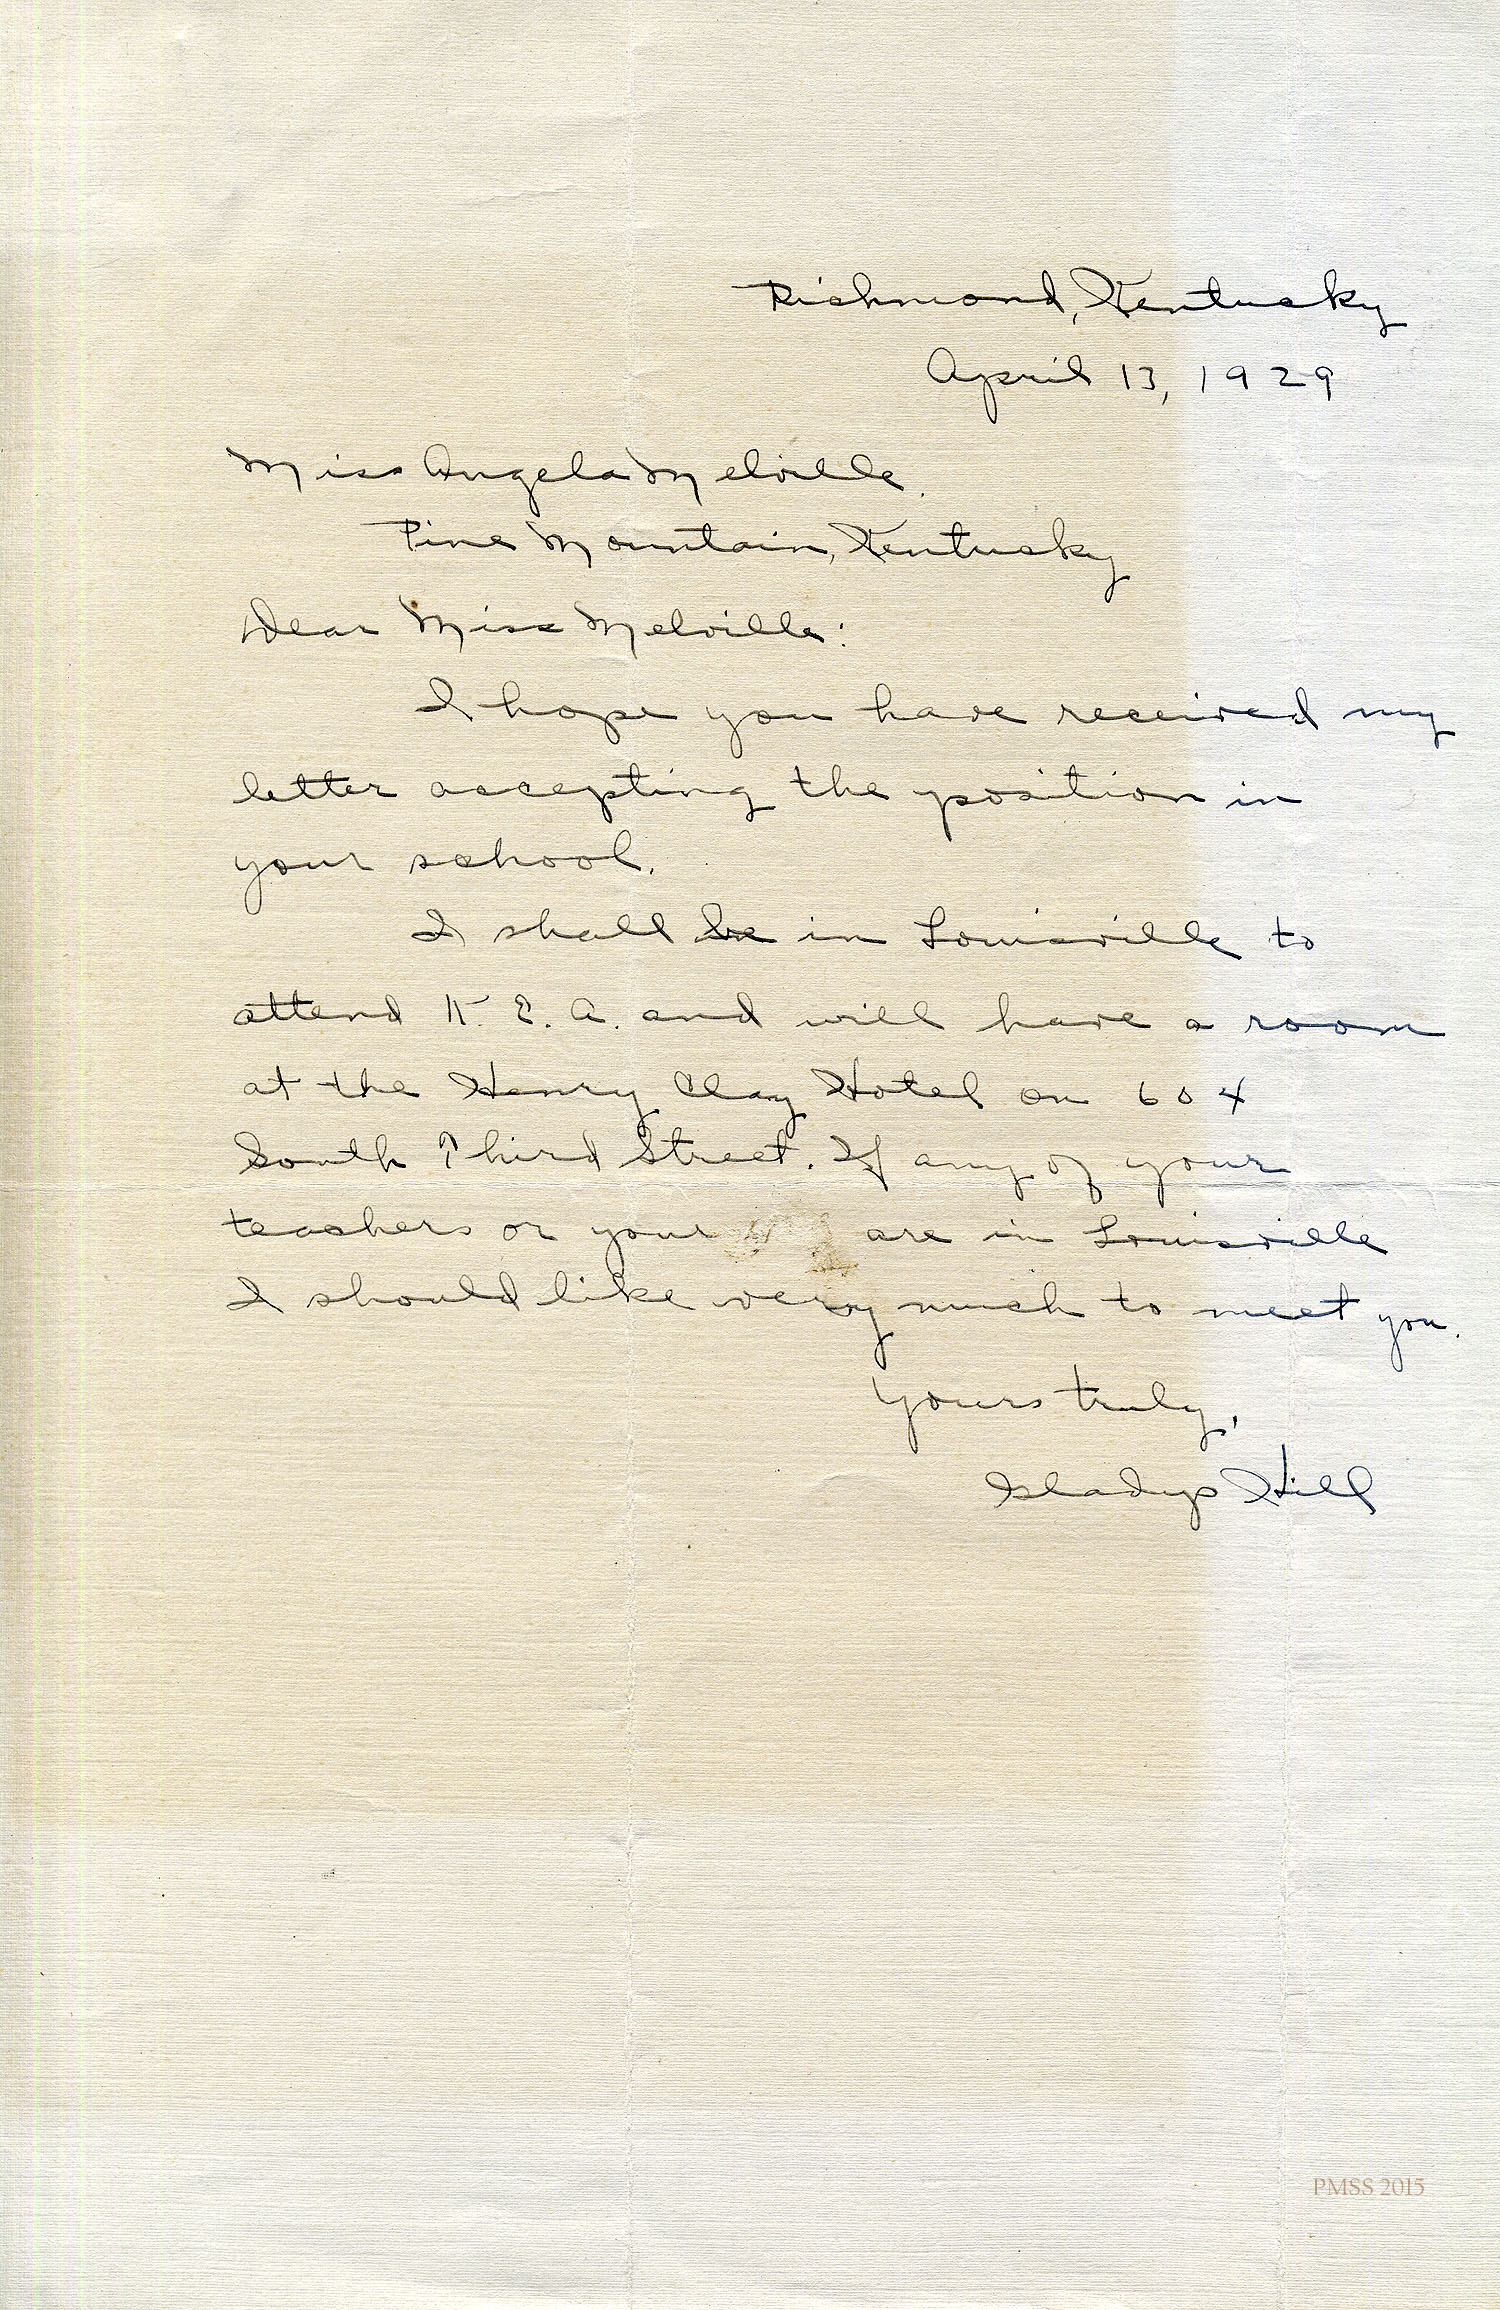 Richmond, Kentucky
April 13, 1929
Miss Angela Melville.
Pine Mountain, Kentucky
Dear Miss Melville:
I hope you have received my
letter accepting the position in
your school.
I shall be in Louisville to
attend K. E. A. and will have a room
at the Henry Clay Hotel on 604
South Third Street. If any of your
teachers or your are in Louisville
I should like very much to meet you.
Yours truly,
Gladys Hill
PMSS 2015